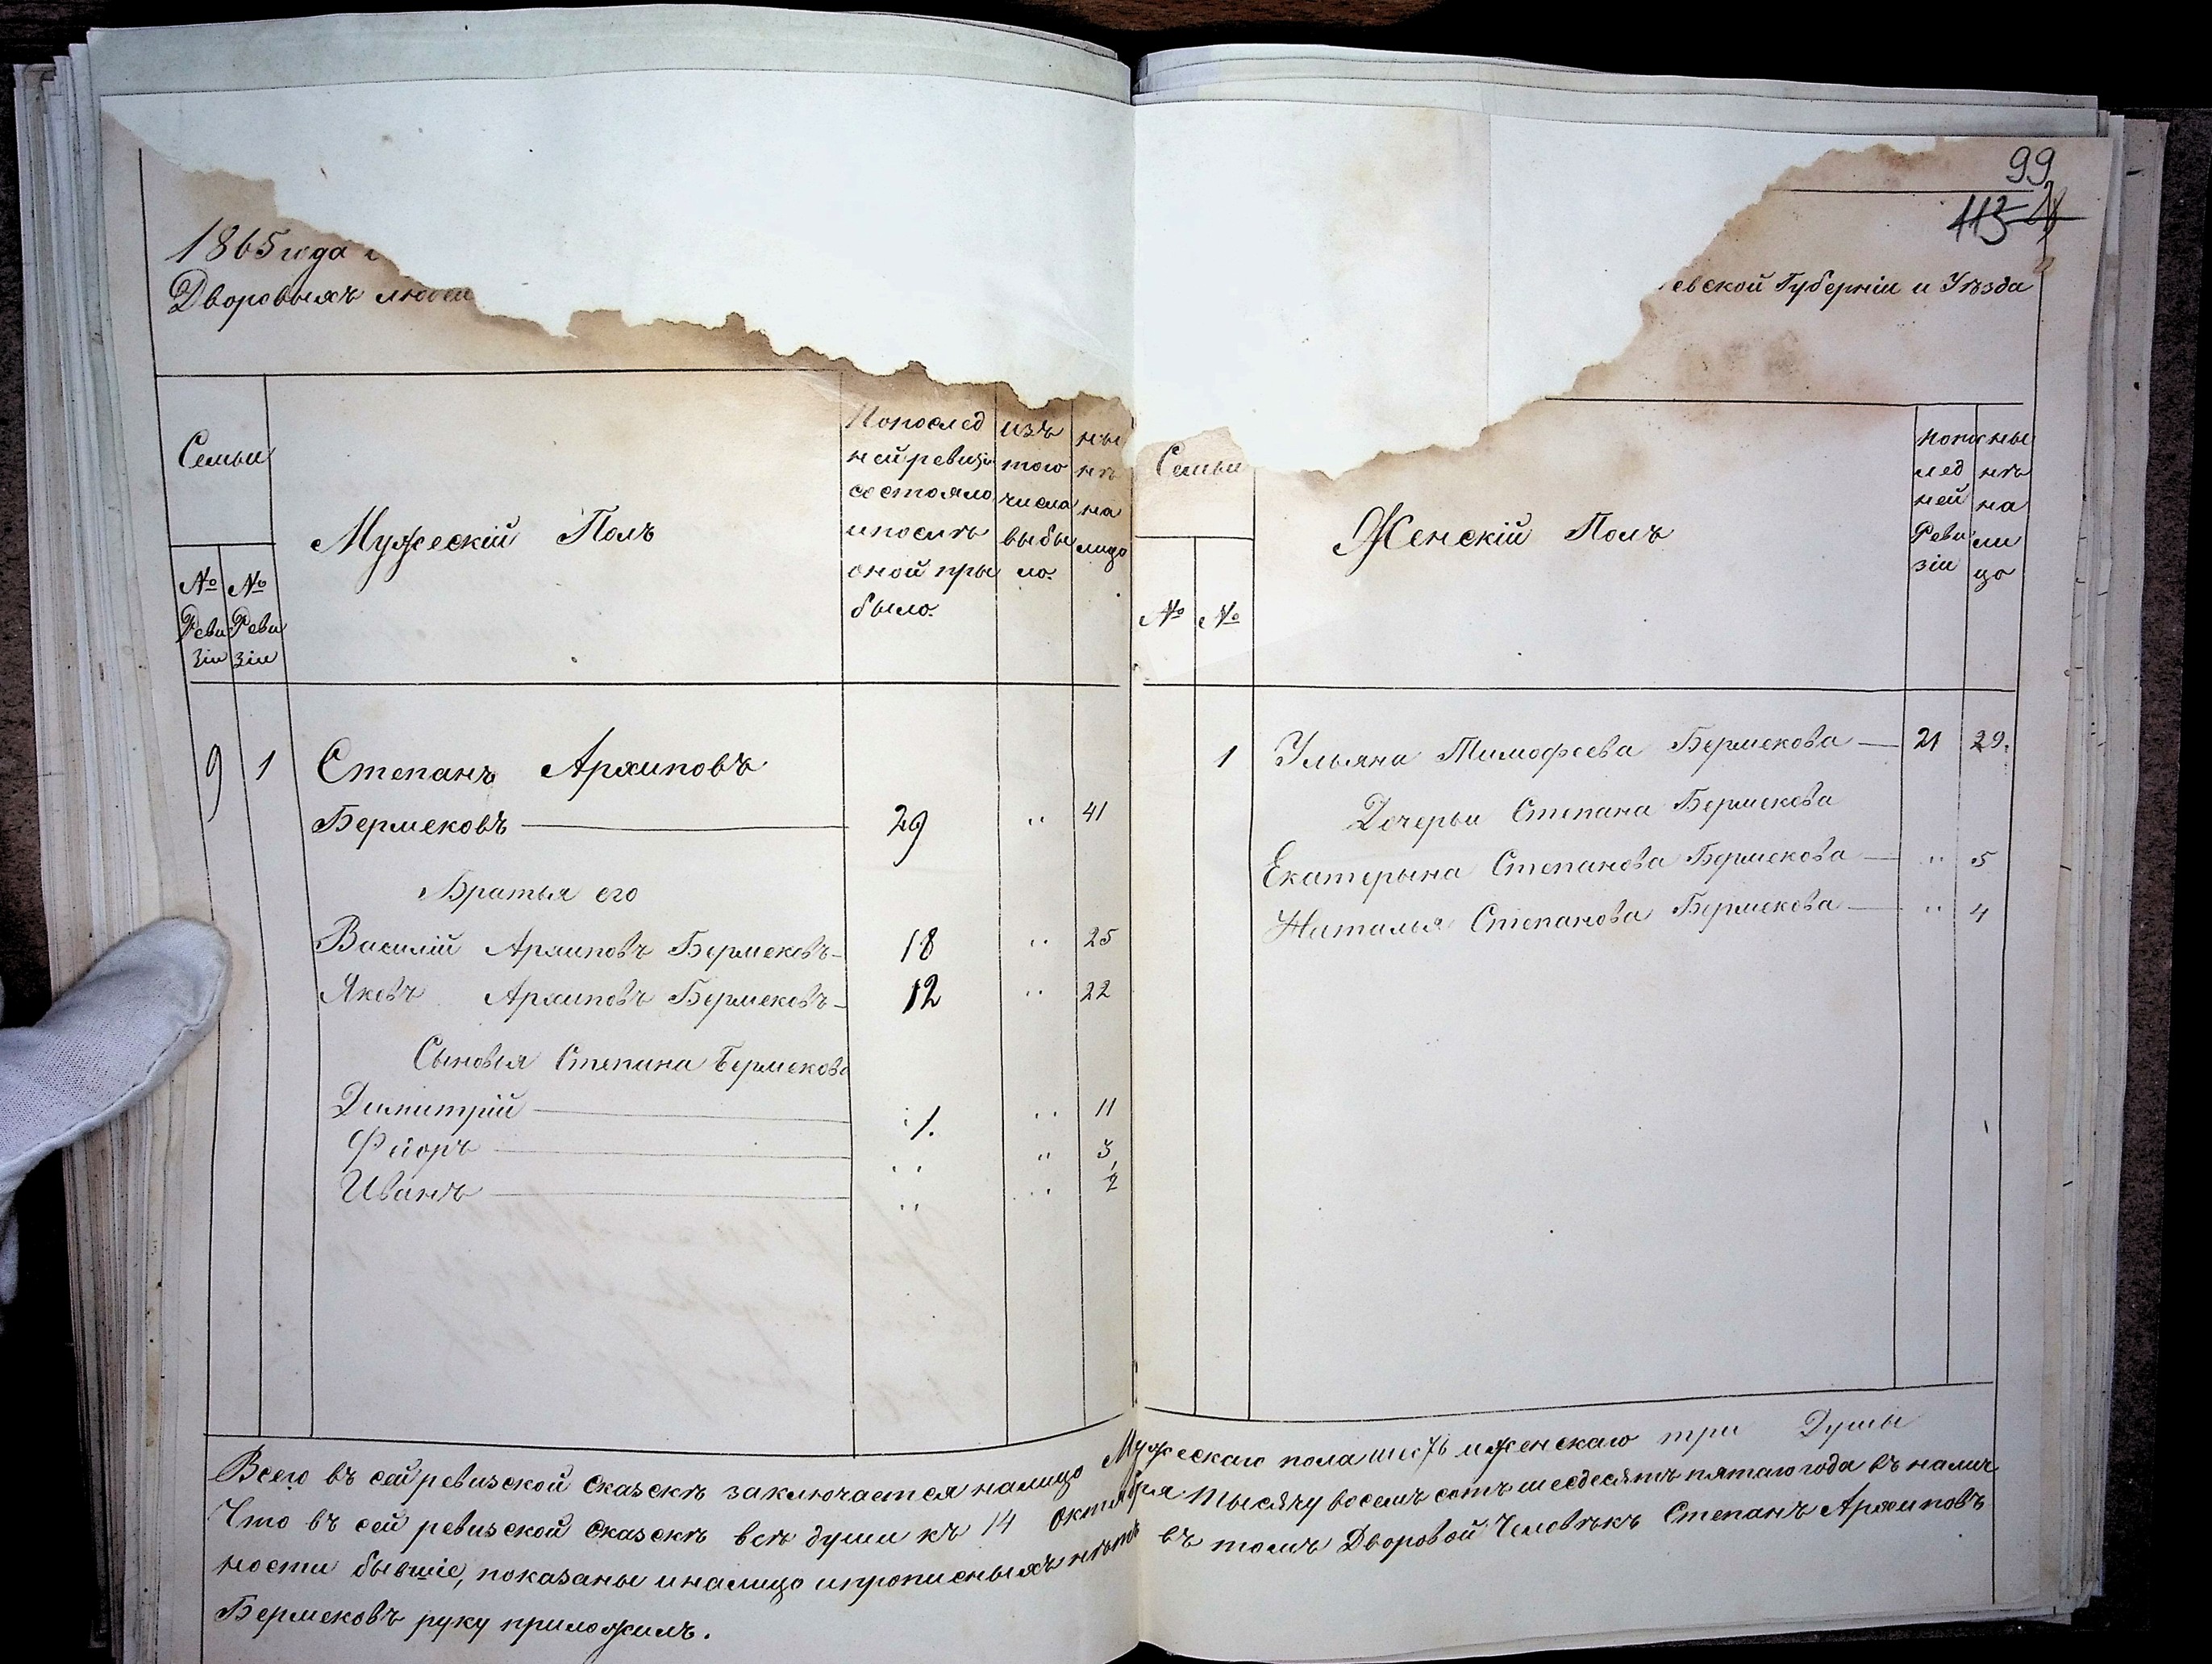 1865 года
Дворовыхъ людей
Семьи
№ Реви зіи
№ Реви зіи
Мужескій Полъ
Попослед
ней ревизіи
состояло
ипослѣ
оной при
было.
изъ
того
числа
выбы
ло.
ны
нѣ
на
лицо
9 1 Степанъ Архиповъ
Бермековъ — 29 " 41
Братья его
Василій Архиповъ Бермековъ - 18 " 25
Яковъ Архиповъ Бермековъ - 12 " 22
Сыновья Степана Бермекова
Димитрій — 1. " 11
Фёдоръ — " " 3
Иванъ — " " 1/2
99
113
евской Губерніи и Уѣзда
Семьи
№ №
Женскій Полъ
попос
лед
ней
Реви
зіи
ны
нѣ
на
ли
цо
1 Ульяна Тимофеева Бермекова — 21 29.
Дочерьи Степана Бермекова
Екатерына Степанова Бермекова — " 5
Наталья Степанова Бермекова — " 4
Всего въ сей ревизской сказскѣ заключается налицо Мужескаго пола шесть иженскаго три Души
Что въ сей ревизской сказскѣ всѣ души къ 14 октября тысячу восемь сотъ шесдесятъ пятаго года въ налич
ности бывшіе, показаны иналицо ипрописныхъ нѣтъ въ томъ Дворовой Человѣкъ Степанъ Архиповъ
Бермековъ руку приложилъ.